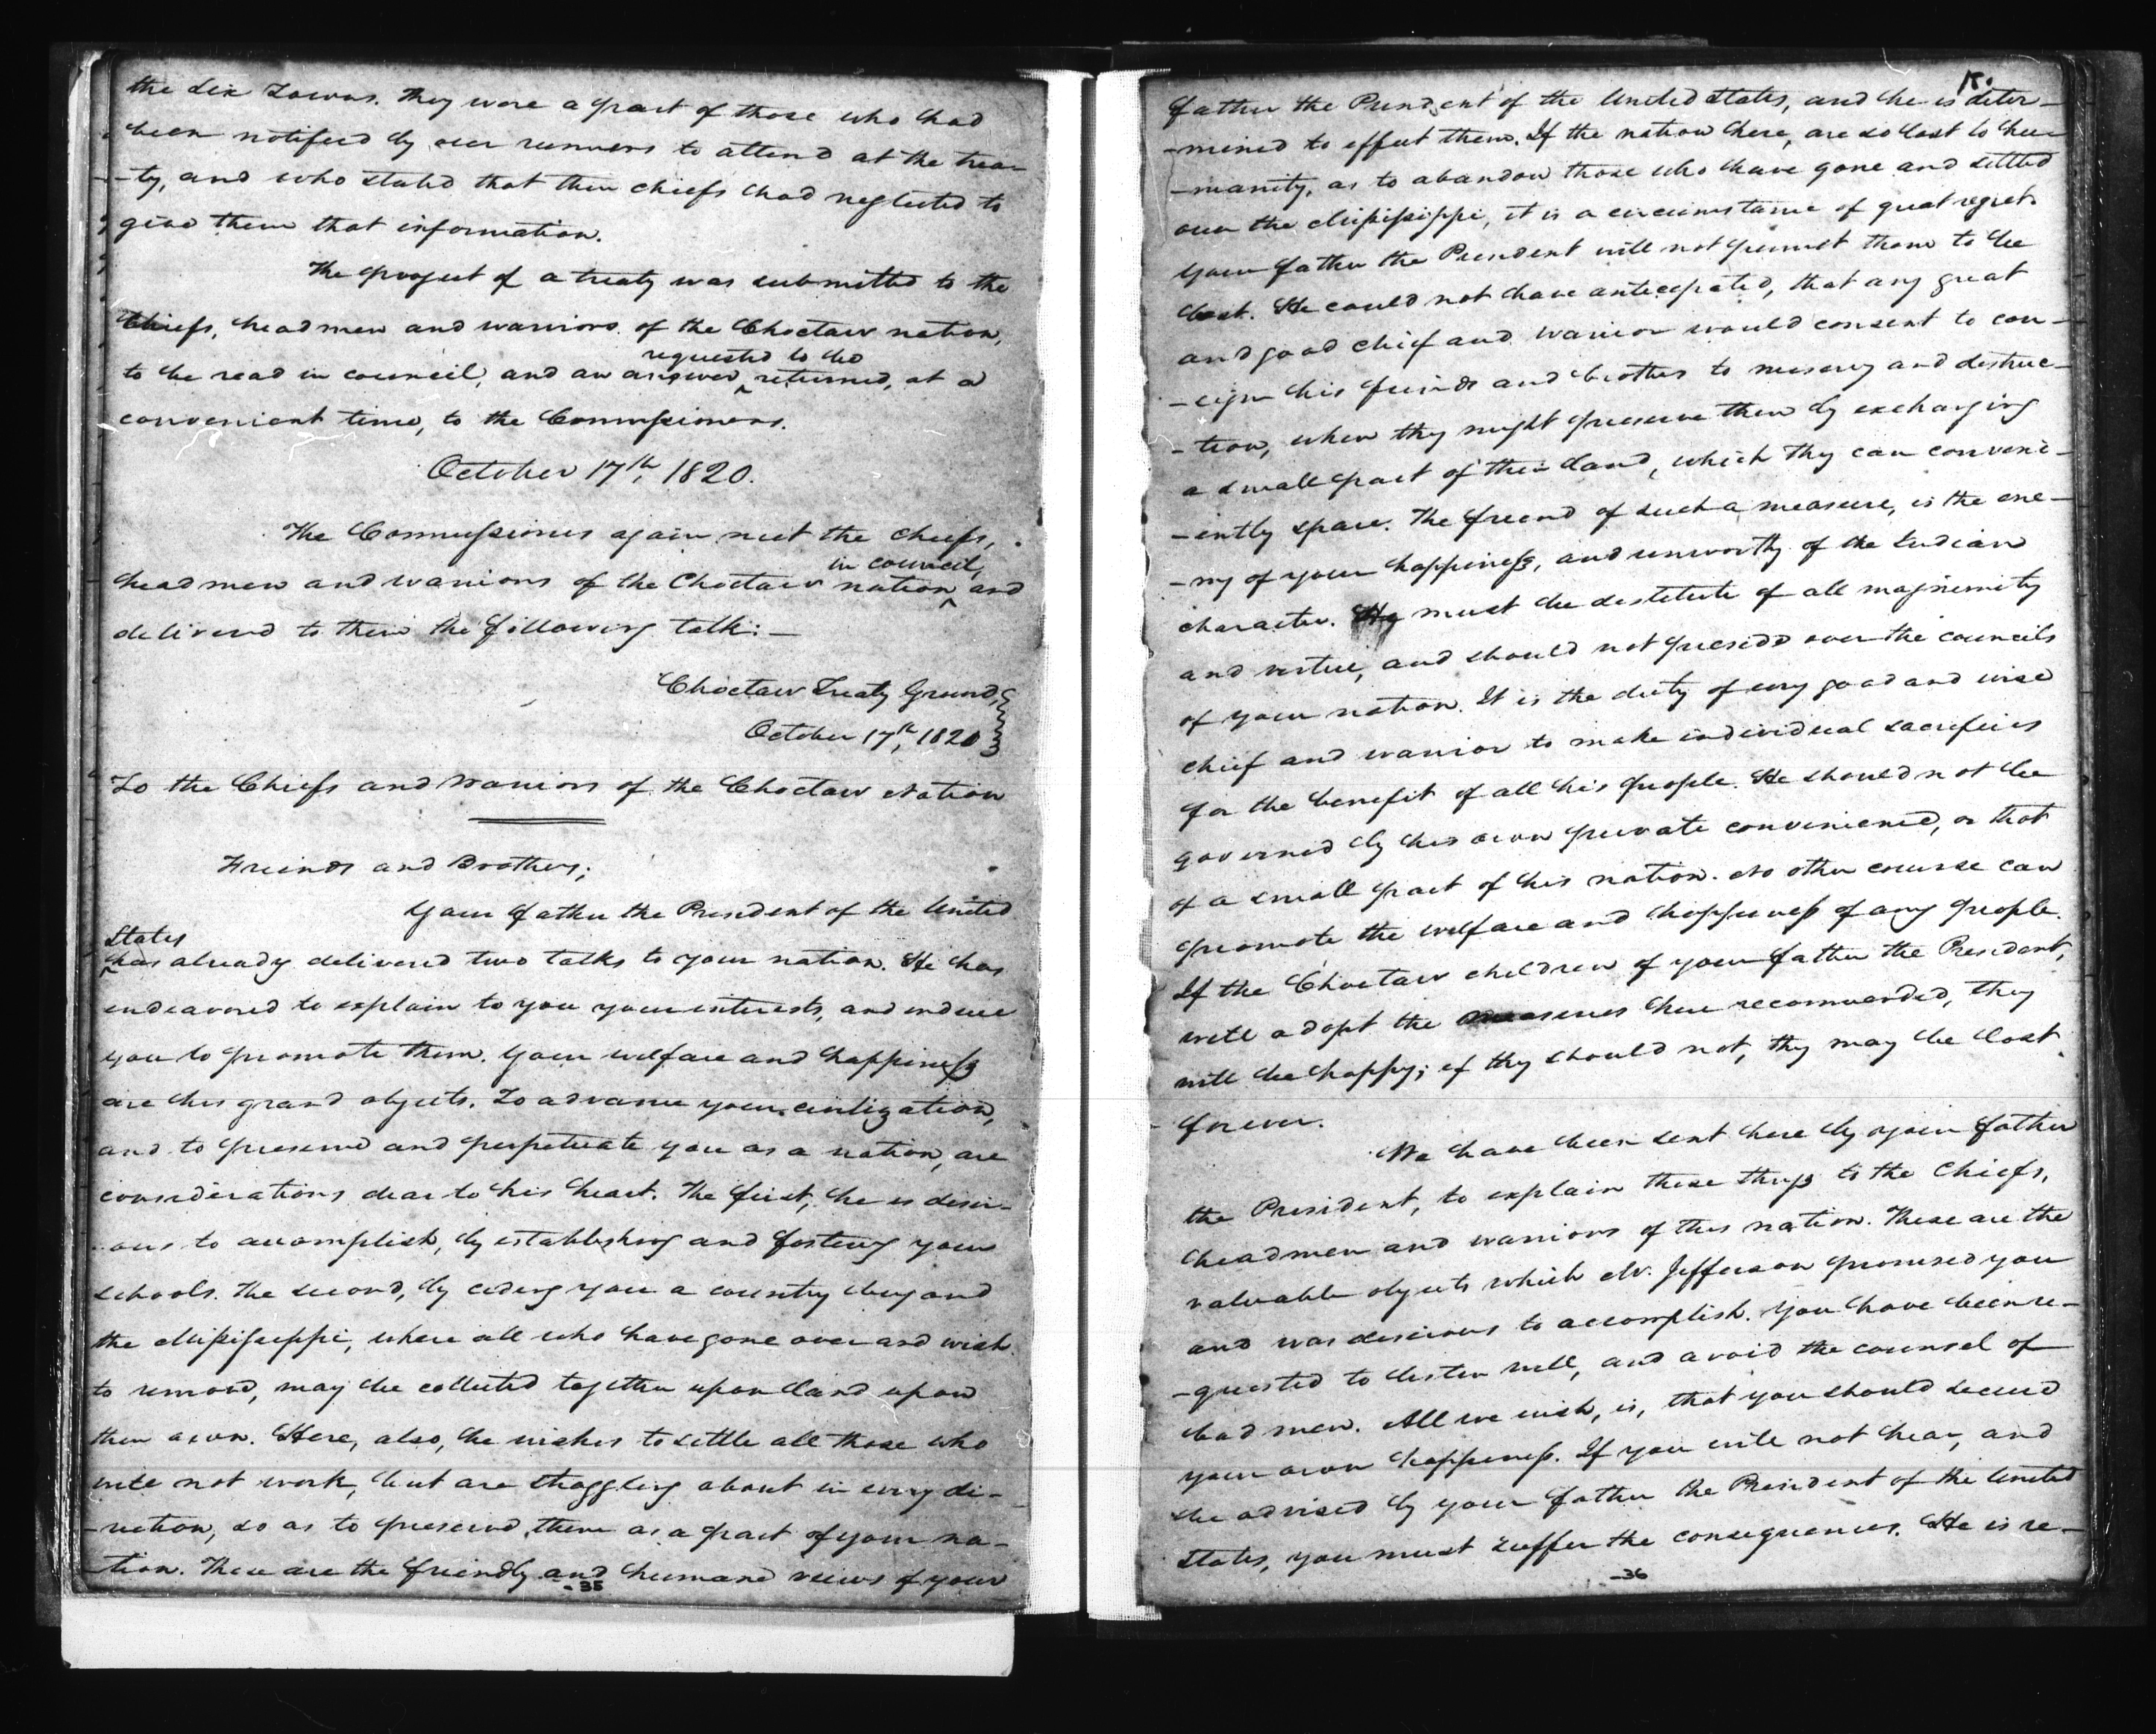 the six Towns. They were a part of those who had
been notified by our runners to attend at the trea-
-ty, and who stated that their chiefs had neglected to
give them that information.
The project of a treaty was submitted to the
Chiefs, headmen and warriors of the Choctaw nation,
requested to be
to be read in council, and an answer ‸ returned, at a
convenient time, to the Commissioners.
October 17th, 1820.
The Commissioners again met the chiefs,
in council,
headmen and warriors of the Choctaw nation ‸ and
delivered to them the following talk:—
Choctaw Treaty Ground,
October 17th, 1820
To the Chiefs and Warriors of the Choctaw Nation
Friends and Brothers;
Your father the President of the United
States
‸ has already delivered two talks to your nation. He has
endeavored to explain to you your interests, and induce
you to promote them. Your welfare and happiness
are his grand objects. To advance your civilization,
and to preserve and perpetuate you as a nation, are
considerations dear to his heart. The first, he is desir-
-ous to accomplish, by establishing and fostering your
schools. The second, by ceding you a country beyond
the Mississippi, where all who have gone over and wish
to remove, may be collected together upon land upon
their own. Here, also, he wishes to settle all those who
will not work, but are straggling about in every di-
-rection, so as to preserve them as a part of your na-
-tion. These are the friendly and humane views of your
-35
K.
father the President of the United States, and he is deter-
-mined to effect them. If the nation here, are so lost to hu-
-manity, as to abandon those who have gone and settled
over the Mississippi, it is a circumstance of great regret.
Your father the President will not permit them to be
lost. He could not have anticipated, that any great
and good chief and warrior would consent to con-
-sign his friends and brothers to misery and destruc-
-tion, when they might preserve them by exchanging
a small part of their land, which they can conveni-
-ently spare. The friend of such a measure, is the ene-
-my of your happiness, and unworthy of the Indian
character. He must be destitute of all magnimity
and virtue, and should not preside over the councils
of your nation. It is the duty of every good and wise
chief and warrior to make individual sacrifices
for the benefit of all his people. He should not be
governed by his own private convenience, or that
of a small part of his nation. No other course can
promote the welfare and happiness of any people.
If the Choctaw children of your father the President,
will adopt the measures here recommended, they
will be happy; if they should not, they may be lost
forever.
We have been sent here by your father
the President, to explain these things to the Chiefs,
headmen and warriors of this nation. These are the
valuable objects which Mr. Jefferson promised you
and was desirous to accomplish. You have been re-
-quested to listen well, and avoid the counsel of
bad men. All we wish, is, that you should secure
your own happiness. If you will not hear, and
be advised by your father the President of the United
States, you must suffer the consequences. He is re-
-36